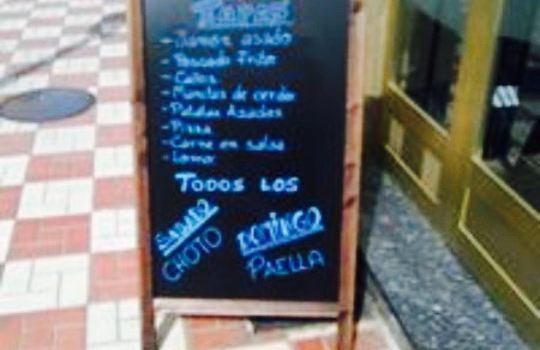 Tapas
- Jamon asado
- Pescado frito
- Callos
- Manitas de cerdo
- Patatas Asadas
- Pizza
- Carne en salsa
- Lomo
TODOS LOS
SABADO
CHOTO
DOMINGO
PAELLA